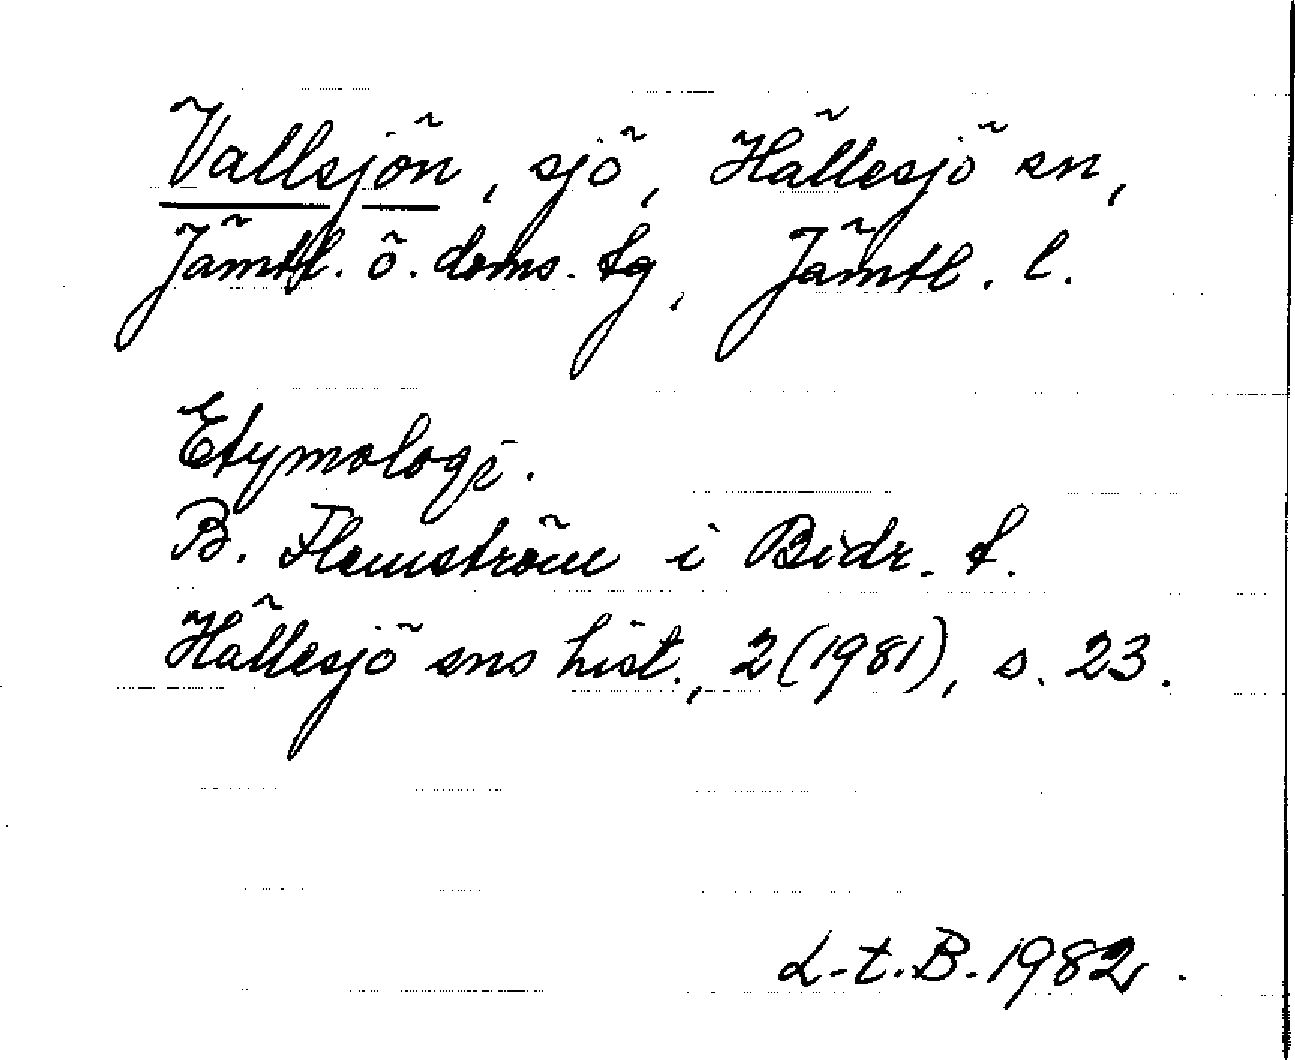 Vallsjön, sjö, Hällesjö sn,
Jämtl. ö. doms. tg, Jämtl. l.
Etymologi.
B. Flemström i Bidr. t.
Hällesjö sns hist., 2 (1981), s. 23.
L-t.B. 1982.